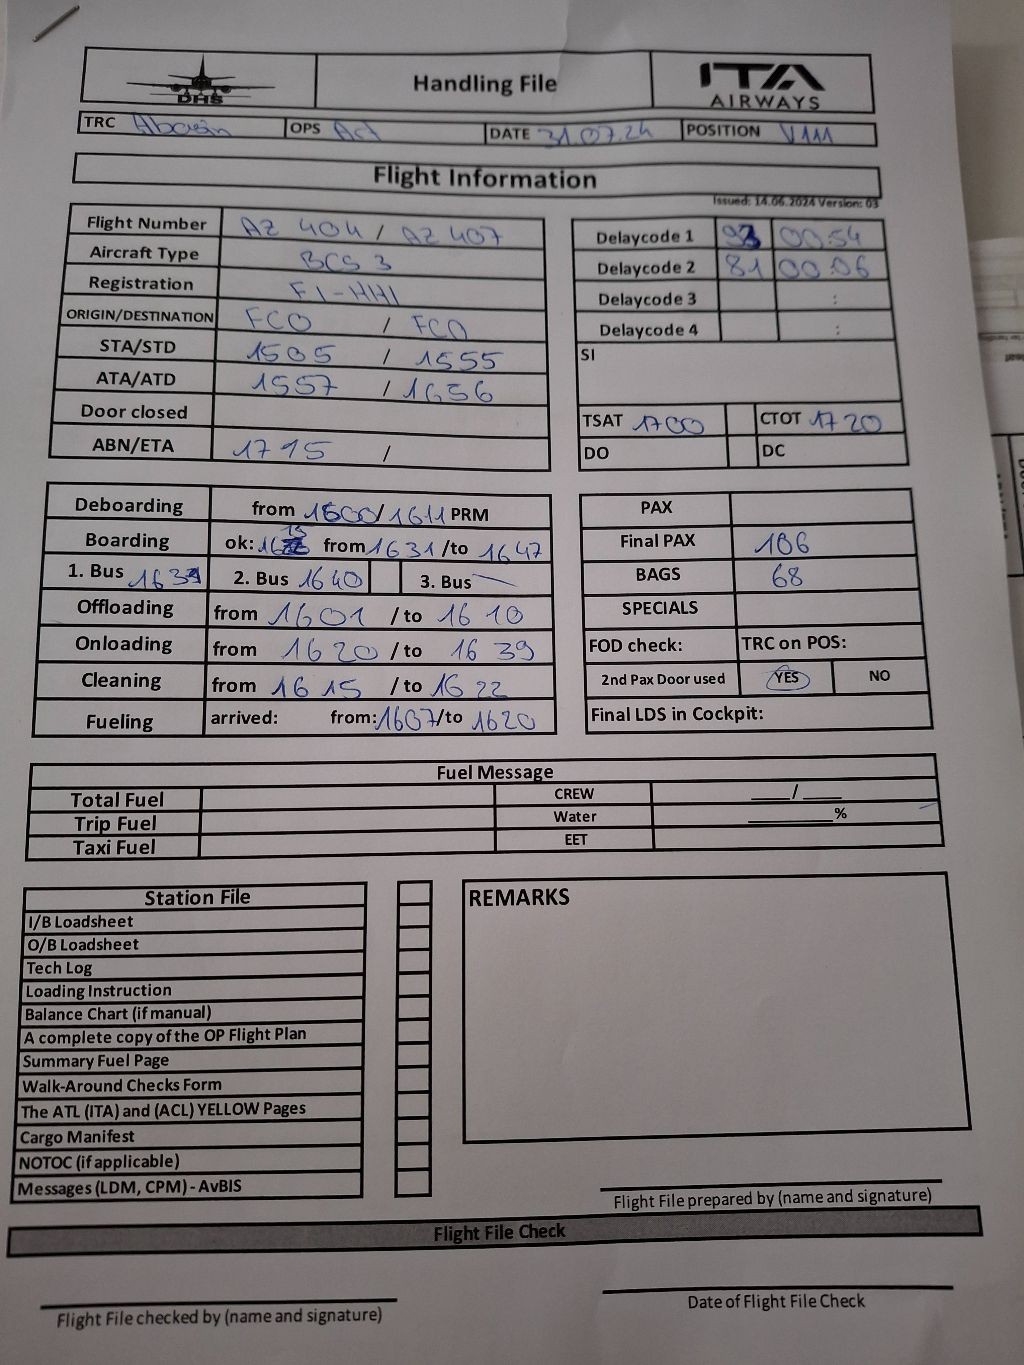 DHS Handling File ITA AIRWAYS
TRC OPS DATE 31.07.24 POSITION V111
Flight Information
Issued: 14.06.2024 Version: 03
Flight Number AZ 404 / AZ 407
Aircraft Type BCS 3
Registration
ORIGIN/DESTINATION FCO / FCO
STA/STD 1505 / 1555
ATA/ATD 1557 / 1656
Door closed
ABN/ETA 1715 /
Delaycode 1 93 00:54
Delaycode 2 81 00:06
Delaycode 3 :
Delaycode 4 :
SI
TSAT 1700 CTOT 1720
DO DC
Deboarding from 1600/1611 PRM
Boarding ok: from 1631 /to 1647
1. Bus 2. Bus 1640 3. Bus
Offloading from 1601 /to 1610
Onloading from 1620 /to 1639
Cleaning from 1615 /to 1622
Fueling arrived: from: 1607/to 1620
PAX
Final PAX 106
BAGS 68
SPECIALS
FOD check: TRC on POS:
2nd Pax Door used YES NO
Final LDS in Cockpit:
Fuel Message
Total Fuel CREW ____/____
Trip Fuel Water ________%
Taxi Fuel EET
Station File
I/B Loadsheet
O/B Loadsheet
Tech Log
Loading Instruction
Balance Chart (if manual)
A complete copy of the OP Flight Plan
Summary Fuel Page
Walk-Around Checks Form
The ATL (ITA) and (ACL) YELLOW Pages
Cargo Manifest
NOTOC (if applicable)
Messages (LDM, CPM) - AvBIS
REMARKS
Flight File prepared by (name and signature)
Flight File Check
Flight File checked by (name and signature)
Date of Flight File Check